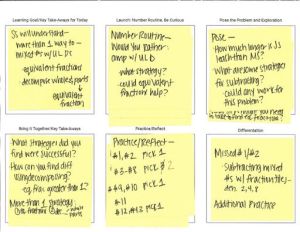 Learning Goal/Key Take-Aways for Today
Ss will understand-
more than 1 way to -
mixed #s w/ULDs
equivalent fractions
decompose whole & parts
equivalent
fractions
Launch: Number Routine, Be Curious
Number Routine-
Would you Rather:
comp w/ULD
-what strategy?
-could equivalent
fractions help?
Pose the Problem and Exploration
Pose -
How much longer is JS
than MS?
What are some strategies
for subtracting?
-could any work for
this problem?
Bring It Together/Key Take-Aways
What strategies did you
find were successful?
How can you find diff
using decomposing?
eg. frac greater than 1?
More than 1 strategy:
parts
Practice/Reflect
Practice/Reflect-
#1, #2 pick 1
#3-#8 pick 2
#9, #10 pick 1
#11
#12 #13 pick 1
Differentiation
Missed #1/#2
-Subtracting mixed
#s w/ fraction tiles/-
den. 2,4,8
Additional Practice